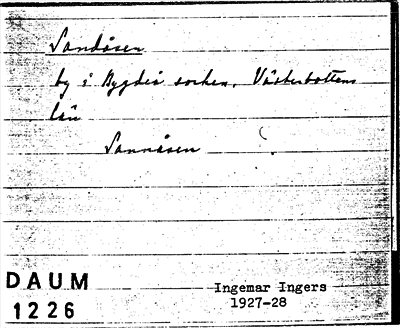 Sandåsen
by i Bygdeå socken, Västerbottens
län
Sannåsen
DAUM
1226
Ingemar Ingers
1927-28